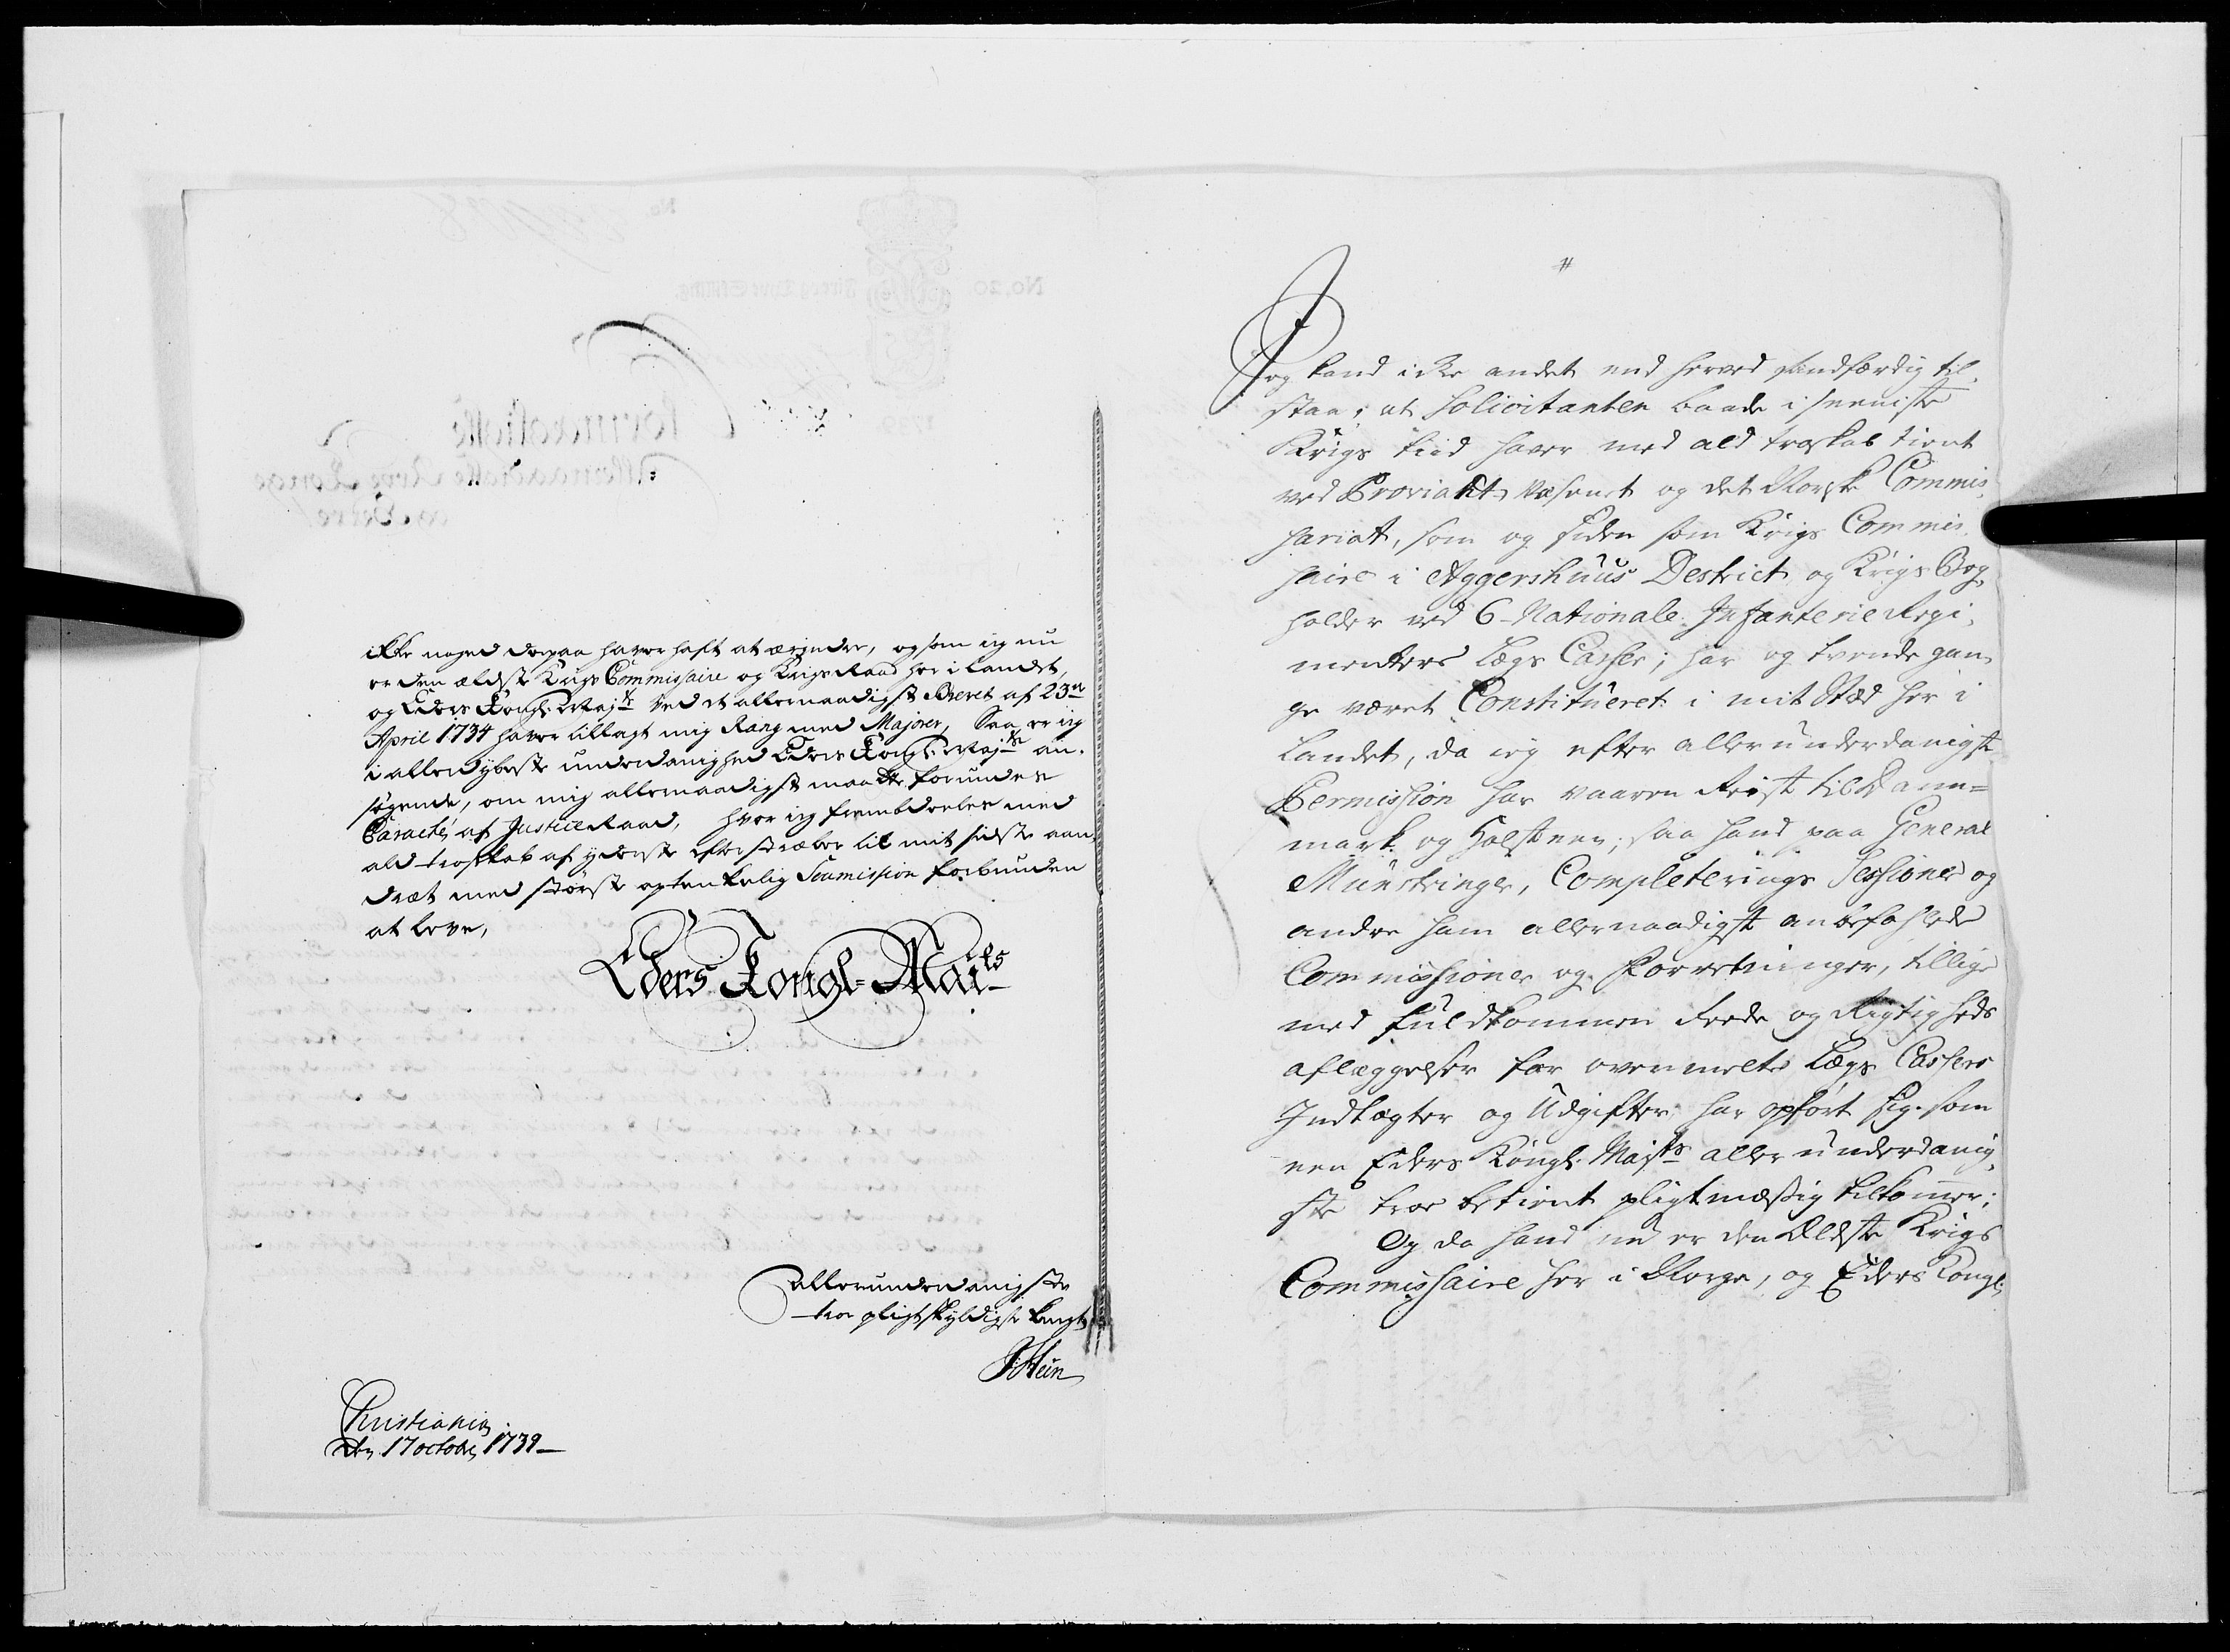 ikke noged derpaa haver haft at ærindre, og som ieg nu
er den ældste Krigs Commissaire og Krigs Raad her i Landet,
og Eders Kongl. Maj:t ved et allernaadigst Bevet af 23de
April 1734 haver tillagt mig Rang med Majorer, Saa er ieg
i allerdybeste underdanighed Eders Kongl: Maj:t an-
søgende, om mig allernaadigst maatte forundes
Caracté af Justice Raad, hvor ieg frembdeeles med
ald troskab af yderste efterstræber til mit sidste aan-
dræt med største optenkelig Soumission forbunden
at leve,
Eders Kongl= Mai:ts
allerunderdanigste
troe pligtskyldigste knegt
Christiania
den 17 octobr 1739
Jeg kand icke andet end herved sandfærdig til-
staa, at Solicitanten baade i seeniste
Krigs tiid haver med ald troskab tient
ved Proviant-Væsenet og det Norske Commis-
sariat, som og siden som Krigs Commis-
saire i Aggershuus District og Krigs Bog-
holder ved 6 Nationale Infanterie Regi-
menters Lægs Casser; har og tvende gan-
ge været Constitueret i mit Sted her i
Landet, da ieg efter allerunderdanigst
Permission har vaaren Reist til Dann=
mark og Holsteen; saa hand paa General
Münstringer, Completerings Sessioner og
andre ham allernaadigst anbefahlede
Commissioner og Forretninger, tillige
med fuldkommen Reede og Rigtigheds
aflæggelser for ovenmelte Lægs Cassers
Indtægter og Udgifter har opført sig som
een Eders Kongl. Majts allerunderdanig-
ste troe betient pligtmæssig tilkommer;
Og da hand nu er den Ældste Krigs
Commissaire her i Norge, og Eders Kongl: